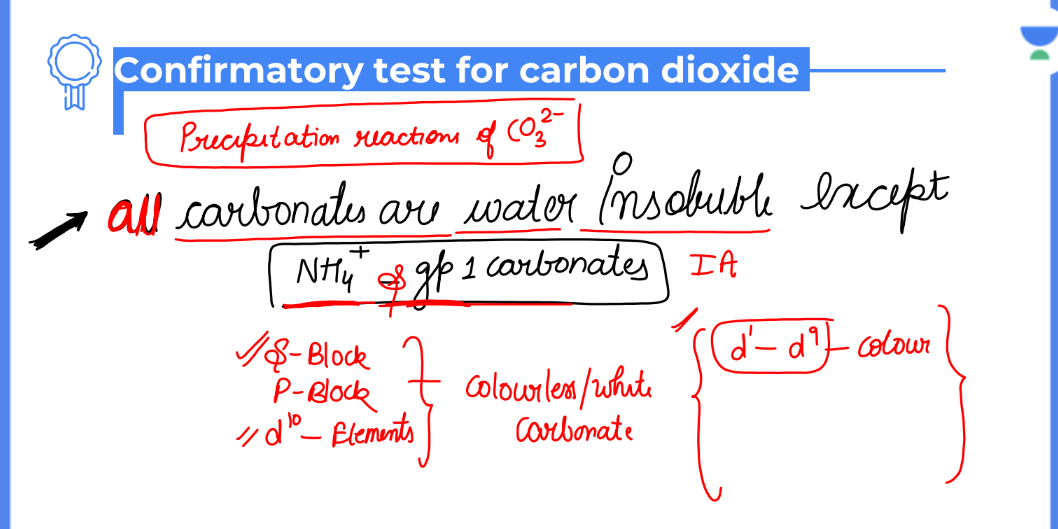 Confirmatory test for carbon dioxide
Precipitation reactions of CO₃²⁻
all carbonates are water insoluble except
NH₄⁺ & gp 1 carbonates IA
S-Block
P-Block
d¹⁰ - Elements
colourless/white
Carbonate
d¹ - d⁹ - colour